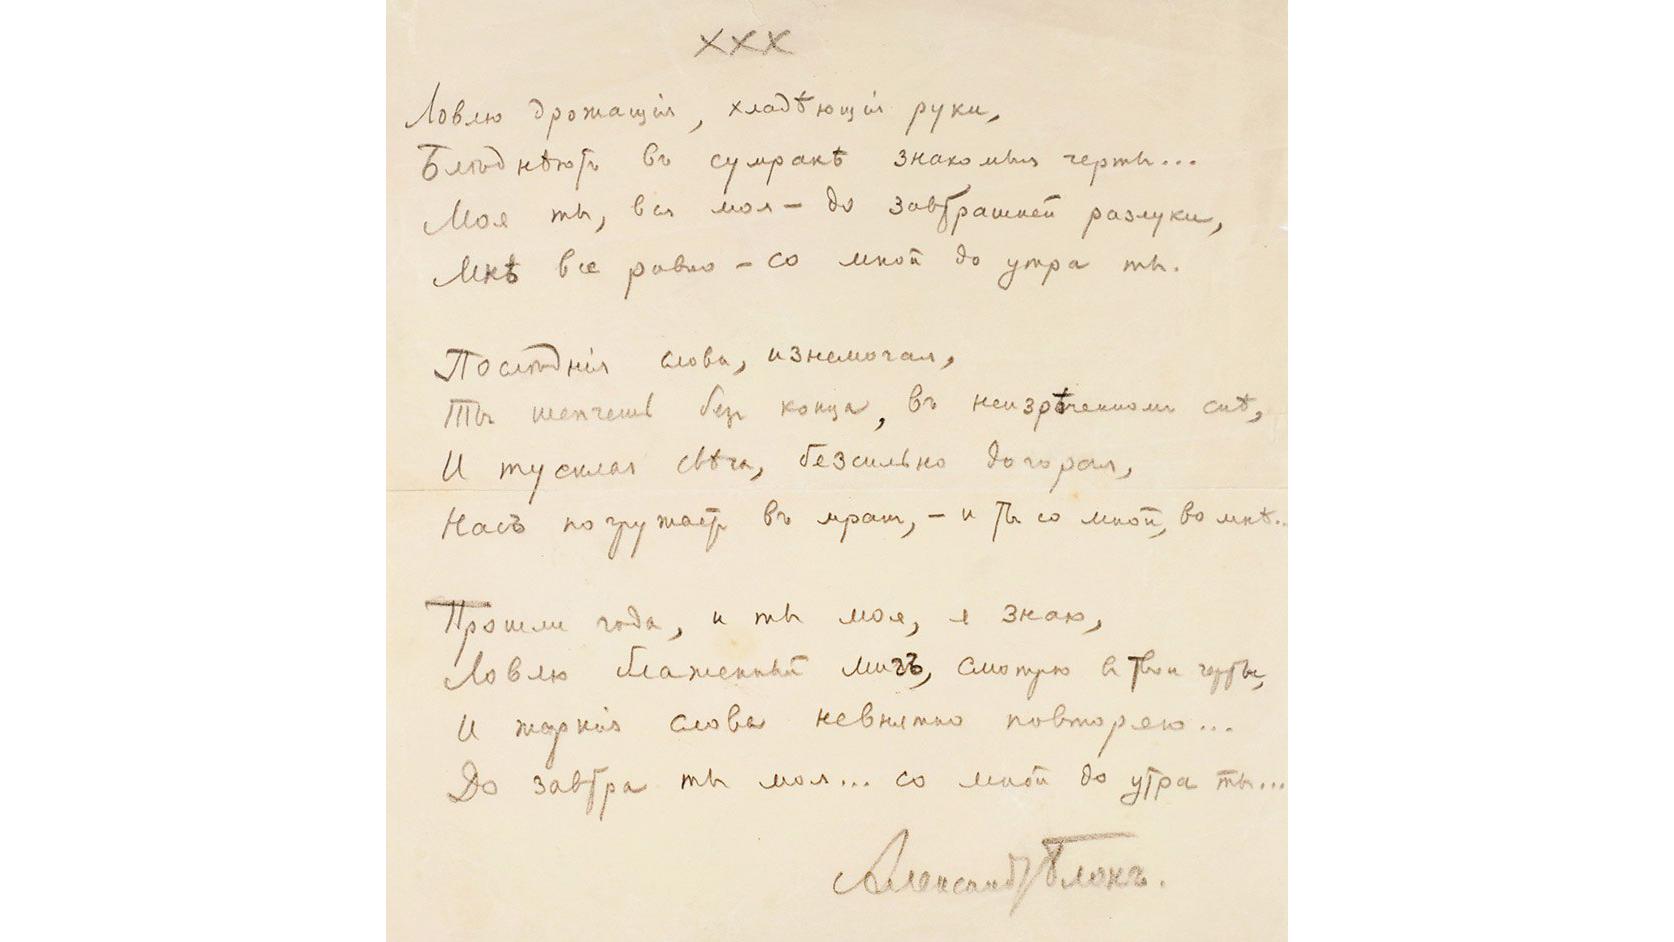 ххх
Ловлю дрожащiя, хладѣющiя руки,
Блѣднѣютъ въ сумракѣ знакомыя черты...
Моя ты, вся моя – до завтрашней разлуки,
Мнѣ все равно – со мной до утра ты.
Послѣднiя слова, изнемогая,
Ты шепчешь безъ конца, въ неизрѣченномъ снѣ,
И тусклая свѣча, безсильно догорая,
Насъ погружаетъ въ мракъ, – и ты со мной, во мнѣ...
Прошли года, и ты моя, я знаю,
Ловлю блаженный мигъ, смотрю въ твои черты,
И жаркiя слова невнятно повторяю...
До завтра ты моя... со мной до утра ты...
Александръ Блокъ.